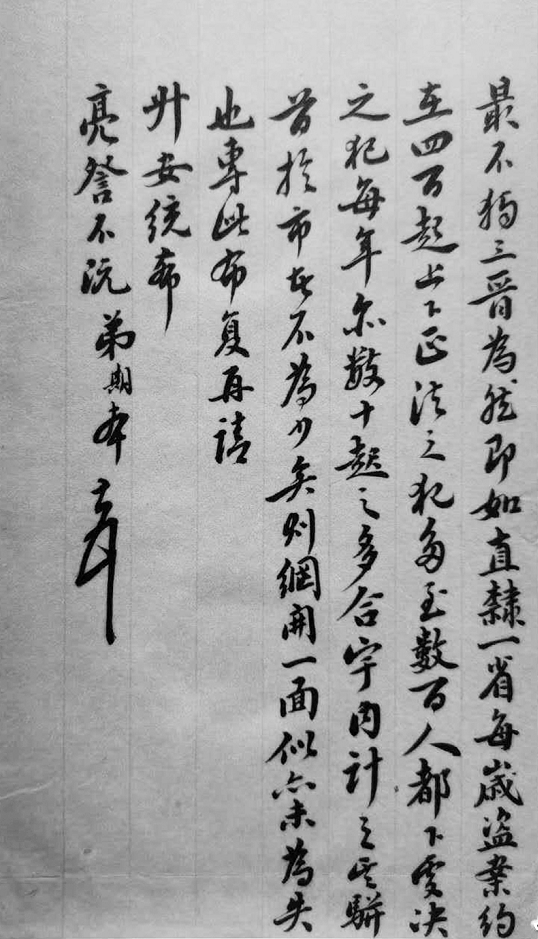 最不獨三晉為然即如直隸一省每歲盜案約
在四百起上下正法之犯多至數百人都下處決
之犯每年亦數十起之多合宇內計之其駢
首於市者不為少矣則網開一面似亦未為失
也專此布復再請
升安統希
亮詧不沅 弟期